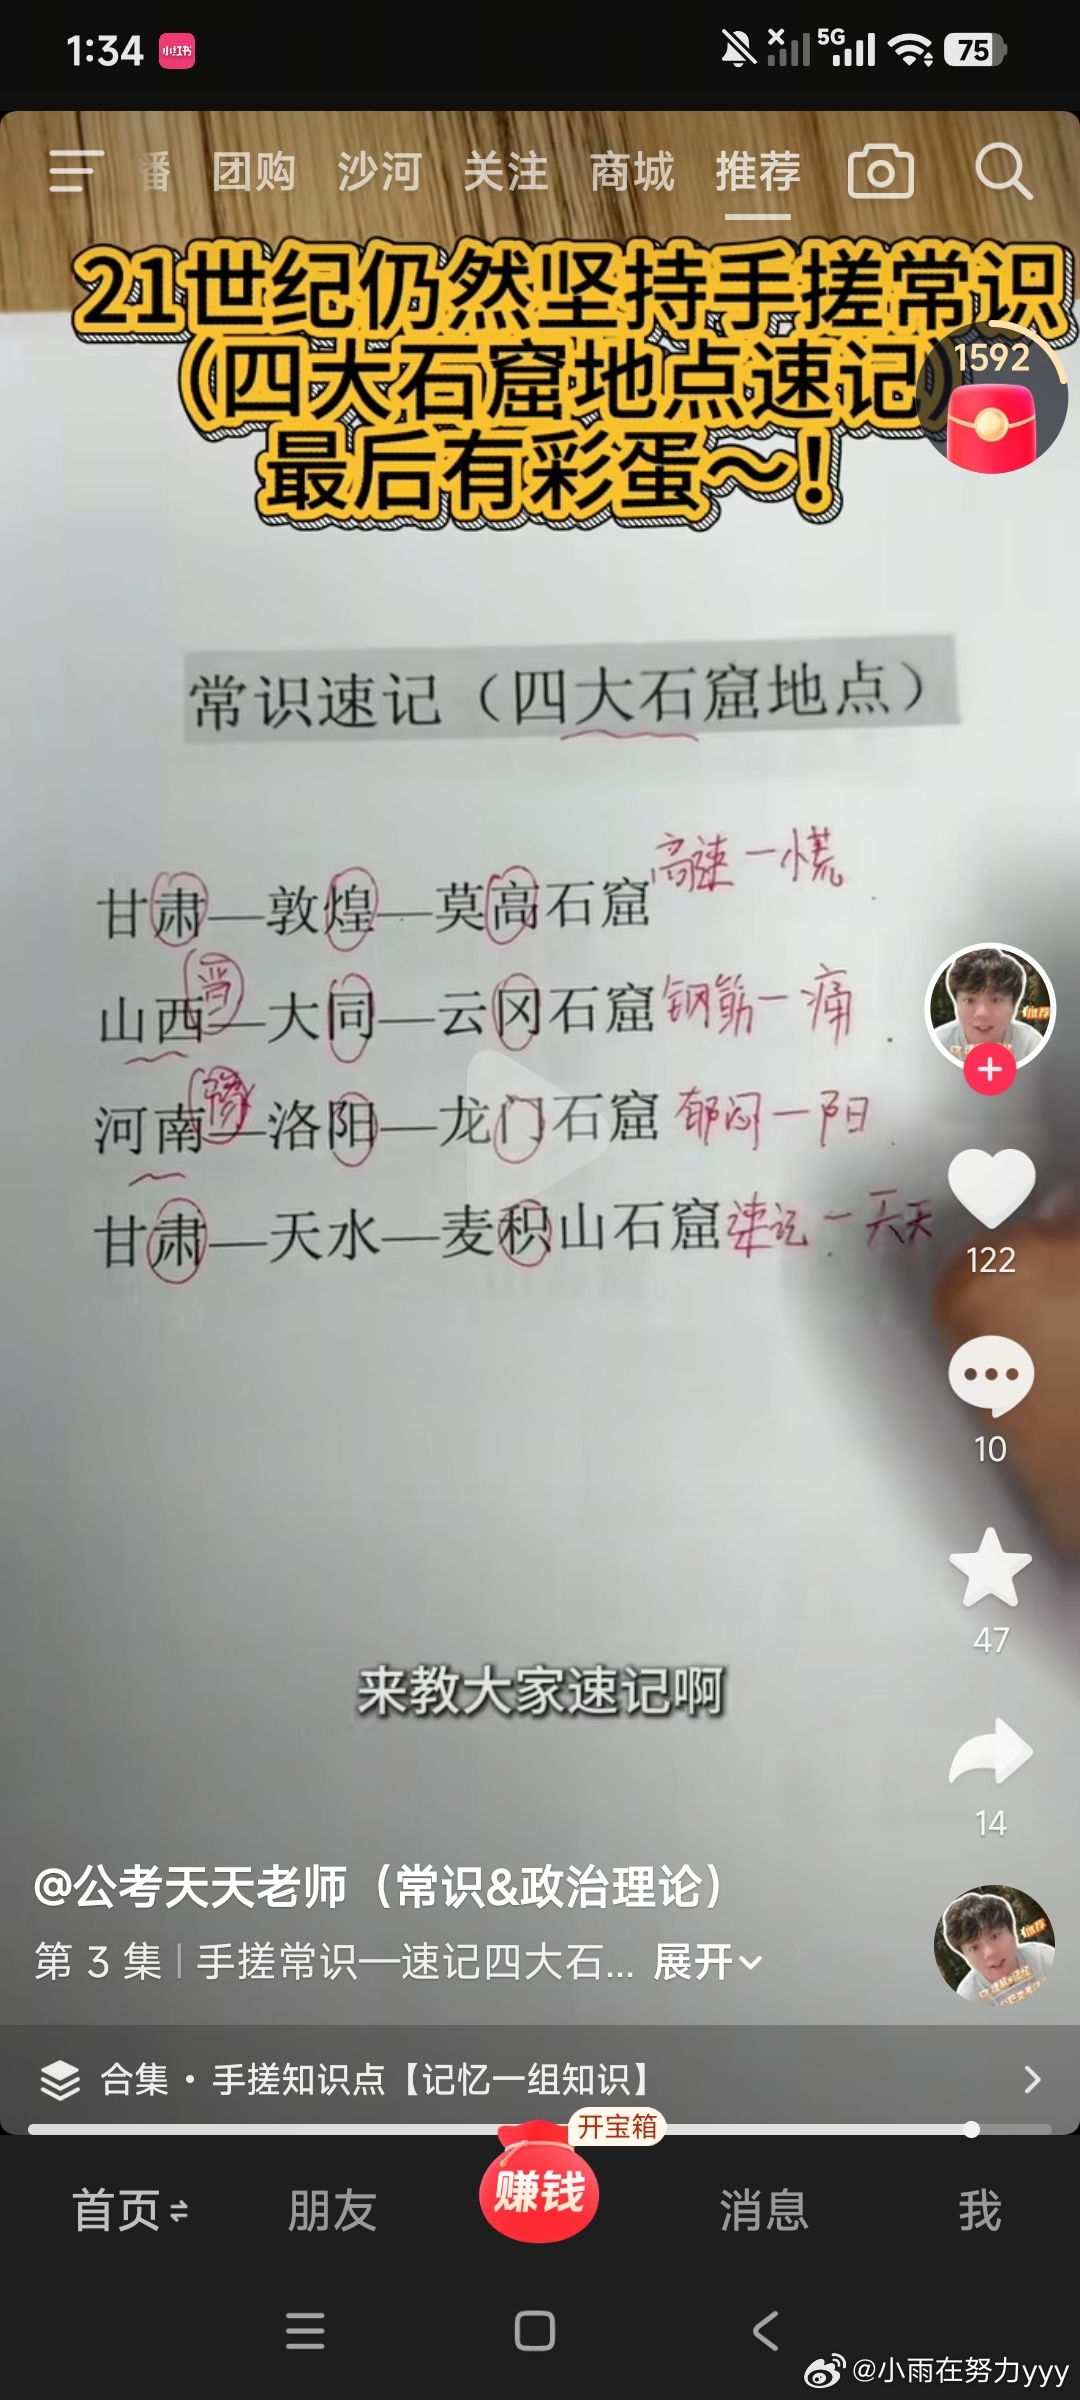 1:34
小红书
5G
75
团购 沙河 关注 商城 推荐
21世纪仍然坚持手搓常识
(四大石窟地点速记)
最后有彩蛋～！
1592
常识速记（四大石窟地点）
高速一慌
甘肃—敦煌—莫高石窟
晋
山西—大同—云冈石窟 钢筋一痛
豫
河南—洛阳—龙门石窟 郁闷一阳
甘肃—天水—麦积山石窟 速记一天天
122
10
47
14
来教大家速记啊
@公考天天老师（常识&政治理论）
第 3 集 | 手搓常识—速记四大石... 展开
合集 · 手搓知识点【记忆一组知识】
开宝箱
首页 朋友 赚钱 消息 我
@小雨在努力yyy